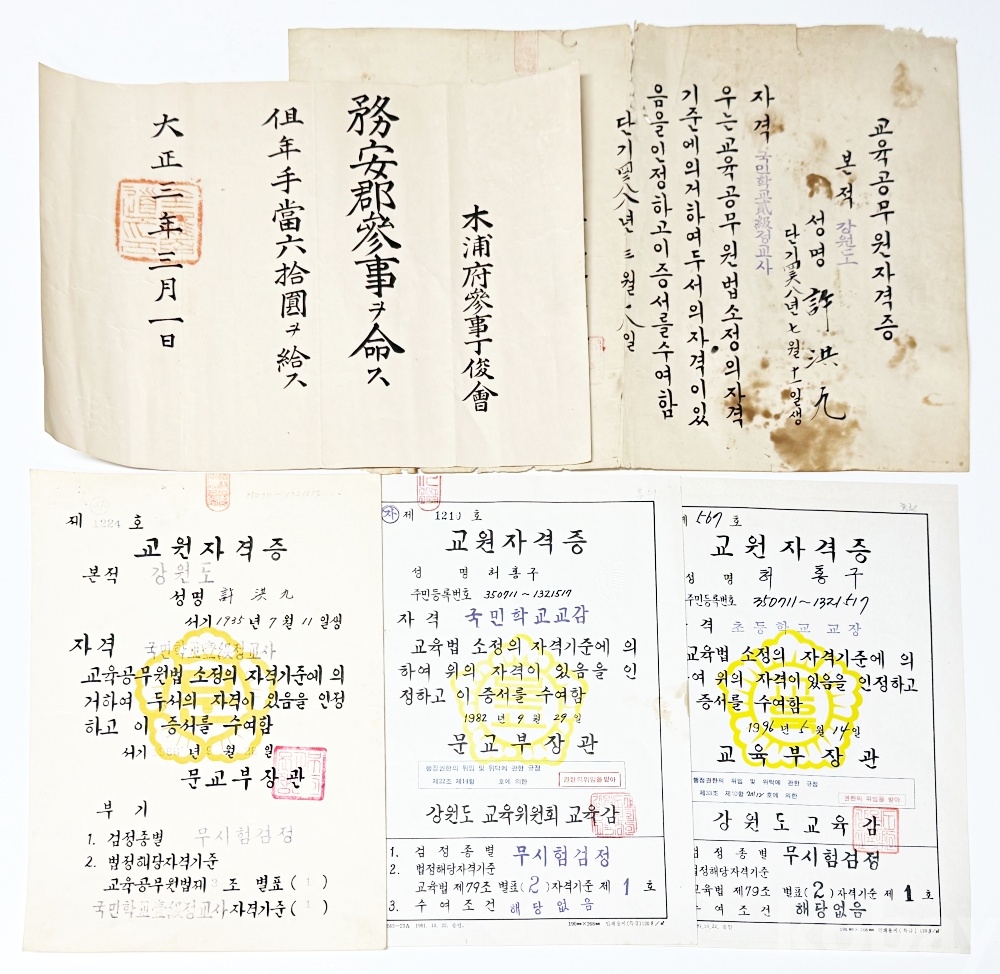 木浦府參事丁俊會
務安郡參事ヲ命ス
但年手當六拾圓ヲ給ス
大正三年三月一日
교육공무원자격증
본적 강원도
성명 許洪九
단기四二六八年七月十一일생
자격 국민학교貳級정교사
우는교육공무원법소정의자격
기준에의거하여두서의자격이있
음을인정하고이증서를수여함
제 1224 호
교원자격증
본적 강원도
성명 許洪九
서기 1935 년 7 월 11 일생
자격 국민학교壹級정교사
교육공무원법 소정의 자격기준에 의
거하여 두서의 자격이 있음을 인정
하고 이 증서를 수여함
서기 년 월 일
문교부장관
부기
1. 검정종별 무시험검정
2. 법정해당자격기준
교육공무원법제 조 별표 ( )
국민학교壹級정교사자격기준 ( )
자 제 호
교원자격증
성명 허홍구
주민등록번호 350711~1321517
자격 국민학교교감
교육법 소정의 자격기준에 의
하여 위의 자격이 있음을 인
정하고 이 증서를 수여함
1982 년 9 월 29 일
문교부장관
행정권한의 위임 및 위탁에 관한 규정
제22조 제14항 호에 의한
권한의위임을받아
강원도 교육위원회 교육감
1. 검정종별 무시험검정
2. 법정해당자격기준
교육법 제79조 별표(2)자격기준 제 1 호
3. 수여조건 해당없음
1981. 10. 22. 승인
제 567 호
교원자격증
성명 허홍구
주민등록번호 350711~1321517
자격 초등학교 교장
교육법 소정의 자격기준에 의
여 위의 자격이 있음을 인정하고
증서를 수여함
1996 년 5 월 14 일
교육부장관
행정권한의 위임 및 위탁에 관한 규정
호에 의한
권한의 위임을 받아
강원도교육감
검정종별 무시험검정
법정해당자격기준
교육법 제79조 별표(2)자격기준 제 1 호
수여조건 해당없음